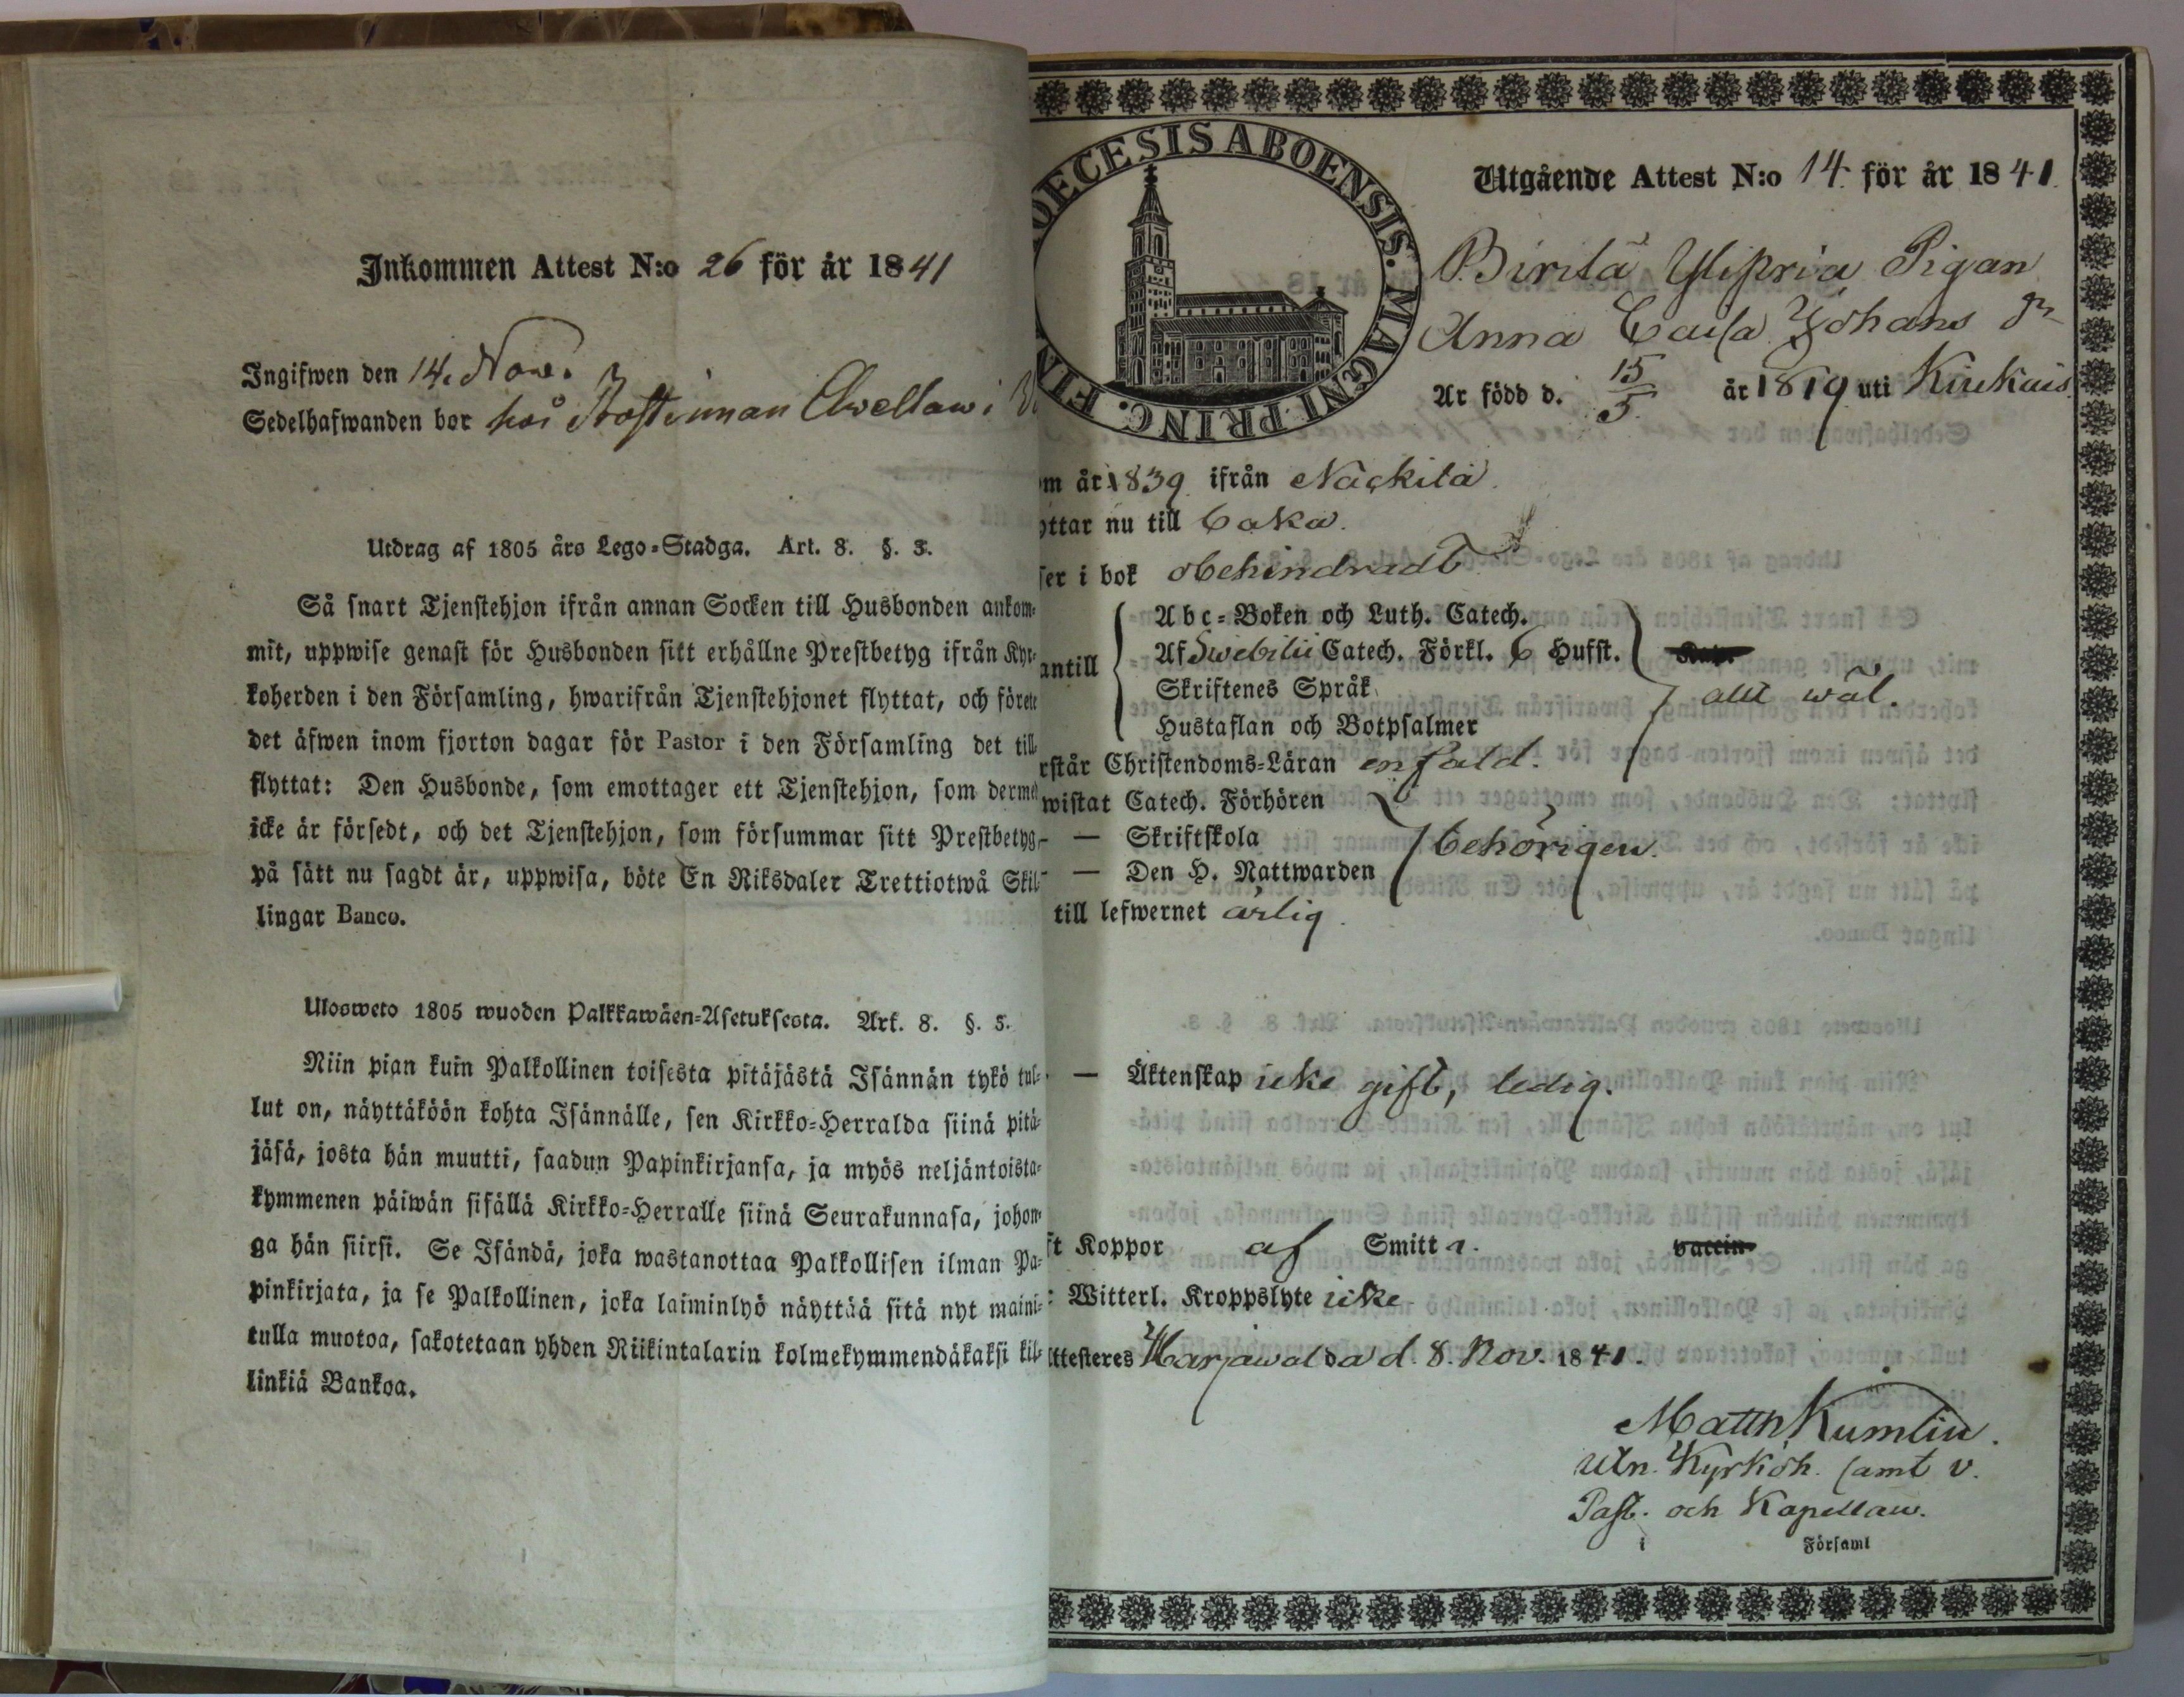 Inkommen Attest N:o 26 för år 1841
Ingifwen den 14. Nov.
Sedelhafwanden bor hos
Utdrag af 1805 års Lego-Stadga. Art. 8. §. 3.
Så snart Tjenstehjon ifrån annan Socken till Husbonden ankom-
mit, uppwise genast för Husbonden sitt erhållne Prestbetyg ifrån Kyr-
koherden i den Församling, hwarifrån Tjenstehjonet flyttat, och förete
det äfwen inom fjorton dagar för Pastor i den Församling det till-
flyttat: Den Husbonde, som emottager ett Tjenstehjon, som dermed
icke är försedt, och det Tjenstehjon, som försummar sitt Prestbetyg,
på sätt nu sagdt är, uppwisa, böte En Riksdaler Trettiotwå Skil-
lingar Banco.
Ulosweto 1805 wuoden Palkkawäen-Asetuksesta. Art. 8. §. 3.
Niin pian kuin Palkollinen toisesta pitäjästä Isännän tykö tul-
lut on, näyttäköön kohta Isännälle, sen Kirkko-Herralda siinä pitä-
jäsä, josta hän muutti, saadun Papinkirjansa, ja myös neljäntoista-
kymmenen päiwän sisällä Kirkko-Herralle siinä Seurakunnasa, johon-
ga hän siirsi. Se Isändä, joka wastanottaa Palkollisen ilman Pa-
pinkirjata, ja se Palkollinen, joka laiminlyö näyttää sitä nyt maini-
tulla muotoa, sakotetaan yhden Riikintalarin kolmekymmendäkaksi kil-
linkiä Bankoa.
DIOECESIS ABOENSIS. MAGNI PRINC. FIN
Utgående Attest N:o 14 för år 1841.
Birilä Ylipria Pigan
Anna Caisa Johans dr
Är född d. 15/5 år 1819 uti Kiukais
om år 1839 ifrån Nackila
yttar nu till
ser i bok obehindradt
antill
Abc-Boken och Luth. Catech.
Af Swebilii Catech. Förkl. 6 Hufst.
Skriftenes Språk
Hustaflan och Botpsalmer
allt wäl.
rstår Christendoms-Läran enfald.
wistat Catech. Förhören
— — Skriftskola
— — Den H. Nattwarden
behörigen.
till lefwernet ärlig.
— Äktenskap icke gift, ledig.
ft Koppor af Smitta. vaccin
: Witterl. Kroppslyte icke
ttesteres Harjawalda d. 8. Nov. 1841.
Matth Kumlin.
Utn. Kyrkoh. samt v.
Past. och Kapellan.
i Församl